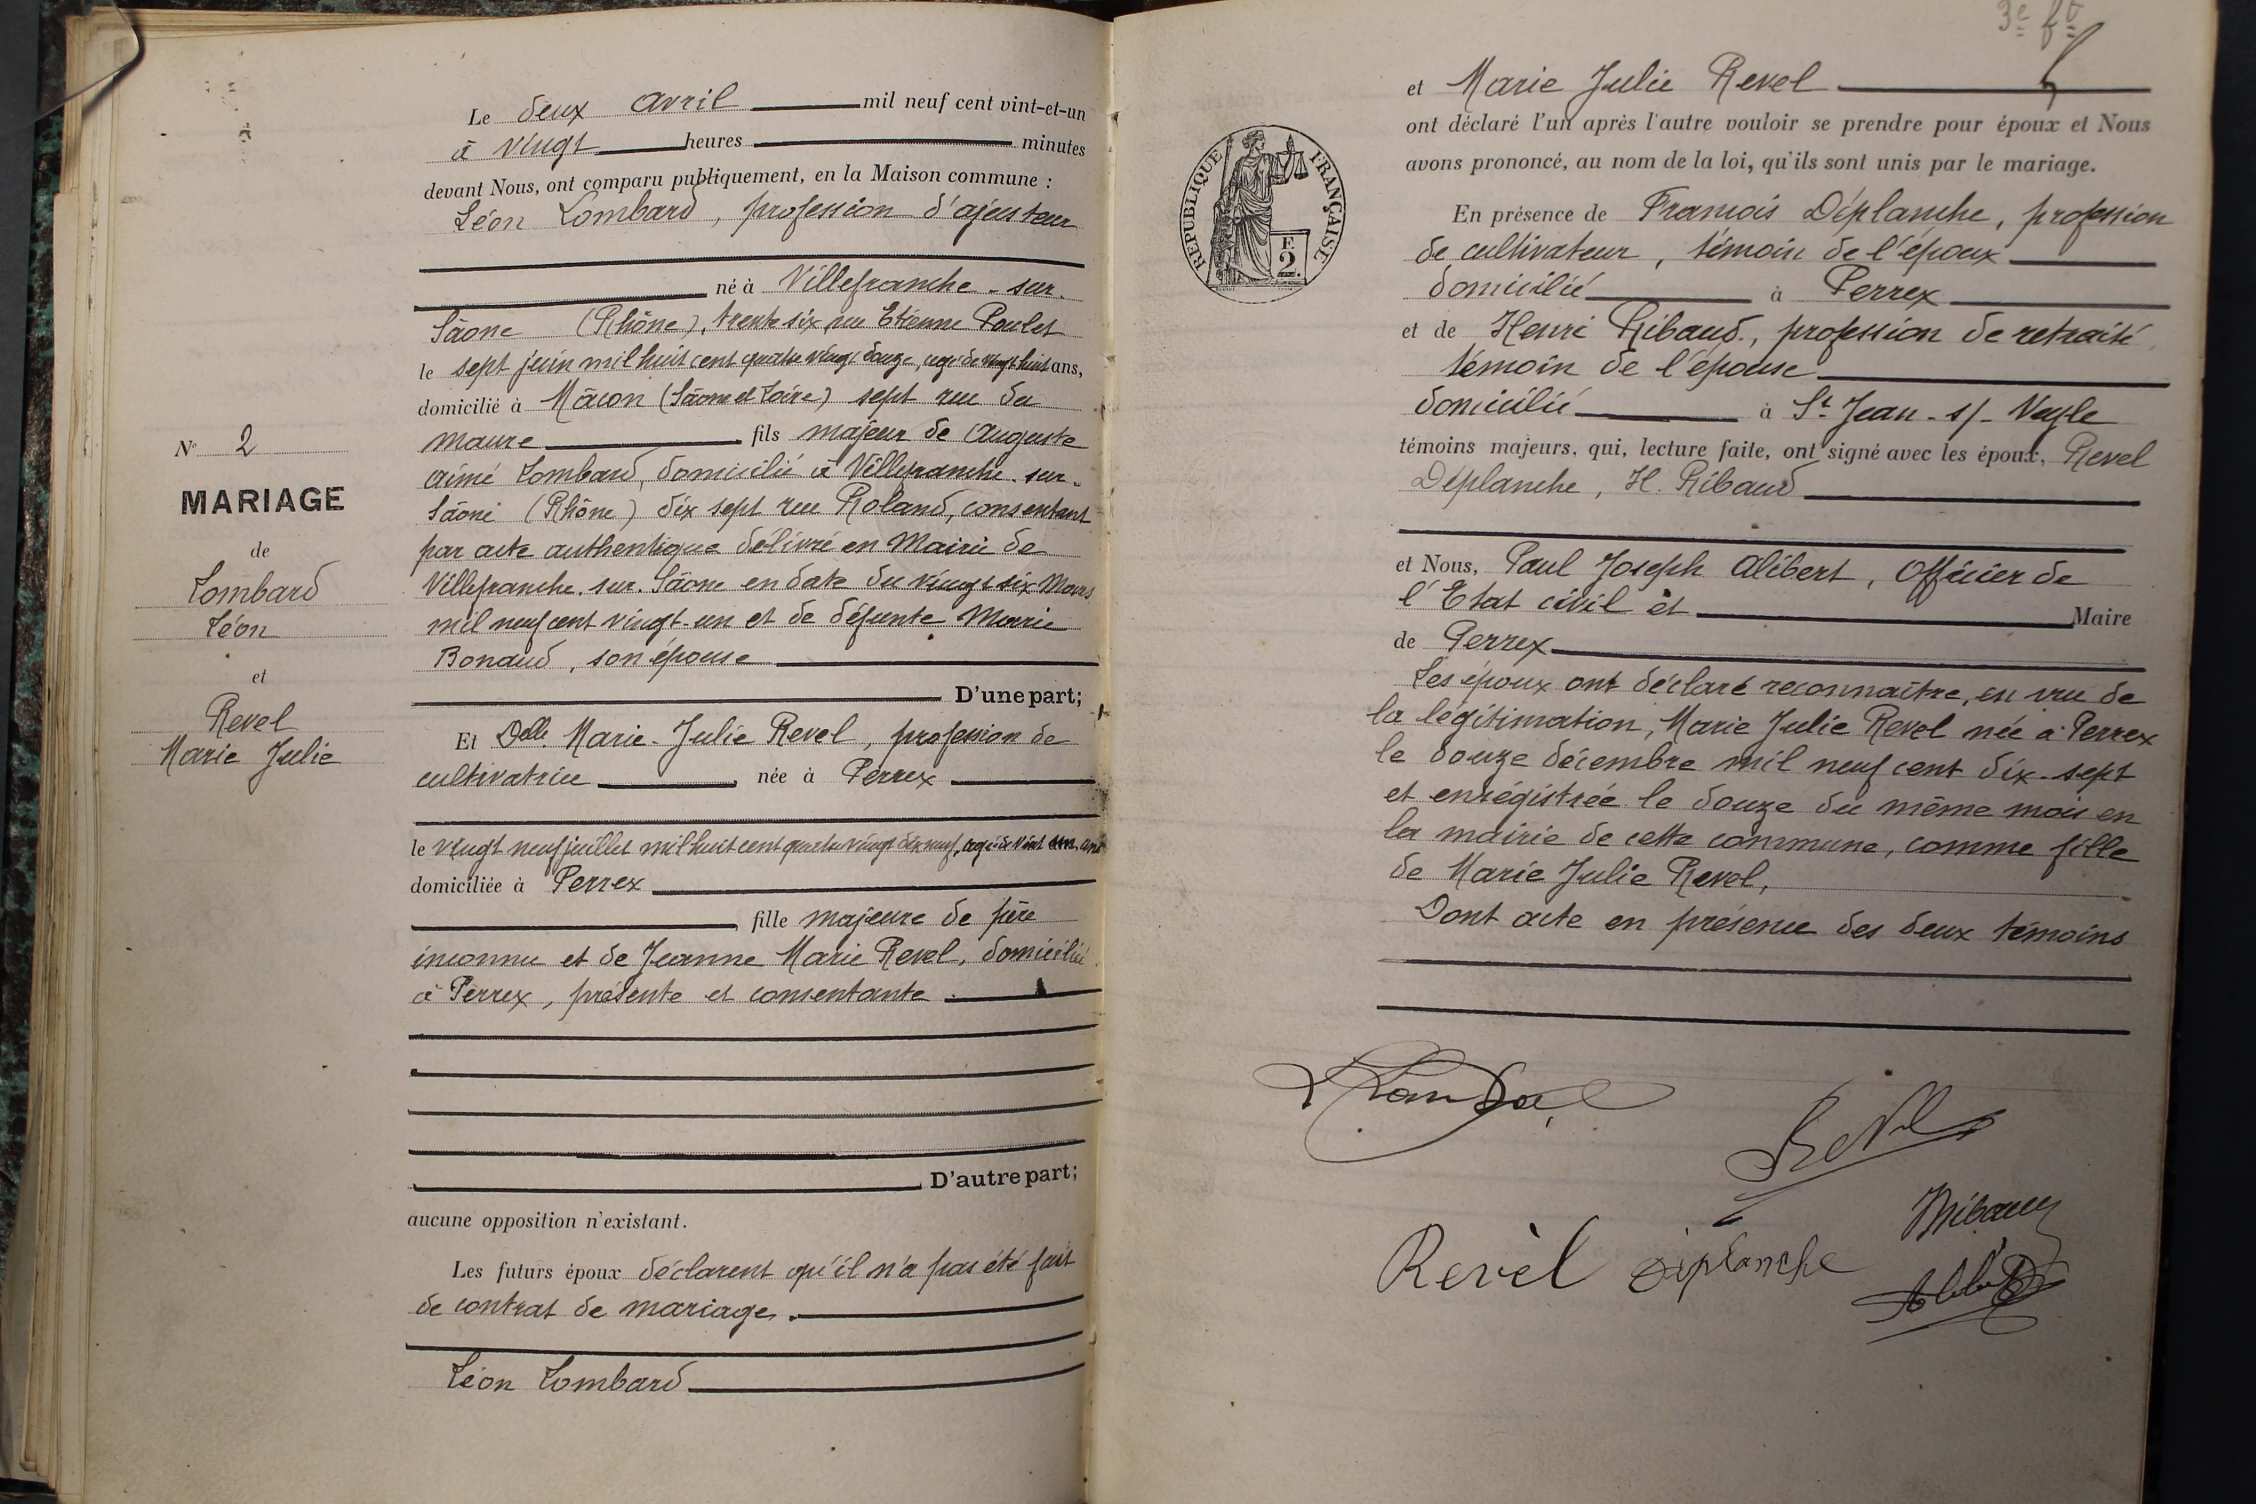 Le deux avril mil neuf cent vint-et-un
à vingt heures minutes
devant Nous, ont comparu publiquement, en la Maison commune :
Léon Lombard, profession d'ajusteur
né à Villefranche-sur-
Sâone (Rhône), trente six rue Etienne Poulet
le sept juin mil huit cent quatre vingt douze, agé de vingt huit ans,
domicilié à Mâcon (Sâone et Loire) sept rue du
maure fils majeur de Auguste
Aimé Lombard, domicilié à Villefranche-sur-
Sâone (Rhône) dix sept rue Roland, consentant
par acte authentique délivré en Mairie de
Villefranche-sur-Sâone en date du vingt six Mars
mil neuf cent vingt-un et de défunte Marie
Bonaud, son épouse
D'une part;
Et Delle Marie-Julie Revel, profession de
cultivatrice née à Perrex
le vingt neuf juillet mil huit cent quatre vingt dix neuf, agée de vint un ans
domiciliée à Perrex
fille majeure de père
inconnu et de Jeanne Marie Revel, domicilié
à Perrex, présente et consentante.
D'autre part;
aucune opposition n'existant.
Les futurs époux déclarent qu'il n'a pas été fait
de contrat de mariage.
Léon Lombard
N° 2
MARIAGE
de
Lombard
Léon
et
Revel
Marie Julie
3e ft
et Marie Julie Revel
ont déclaré l'un après l'autre vouloir se prendre pour époux et Nous
avons prononcé, au nom de la loi, qu'ils sont unis par le mariage.
RÉPUBLIQUE FRANÇAISE
F.
2.
En présence de François Déplanche, profession
de cultivateur, témoin de l'époux
domicilié à Perrex
et de Henri Ribaud, profession de retraité
témoin de l'épouse
domicilié à St Jean-s/-Veyle
témoins majeurs, qui, lecture faite, ont signé avec les époux, Revel
Déplanche, H. Ribaud
et Nous, Paul Joseph Alibert, Officier de
l'Etat civil et Maire
de Perrex
Les époux ont déclaré reconnaître, en vue de
la légitimation, Marie Julie Revel née à Perrex
le douze décembre mil neuf cent dix-sept
et enrégistrée le douze du même mois en
la mairie de cette commune, comme fille
de Marie Julie Revel,
Dont acte en présence des deux témoins
Revel
Revèl Diplanche
HRibaud
Alibert